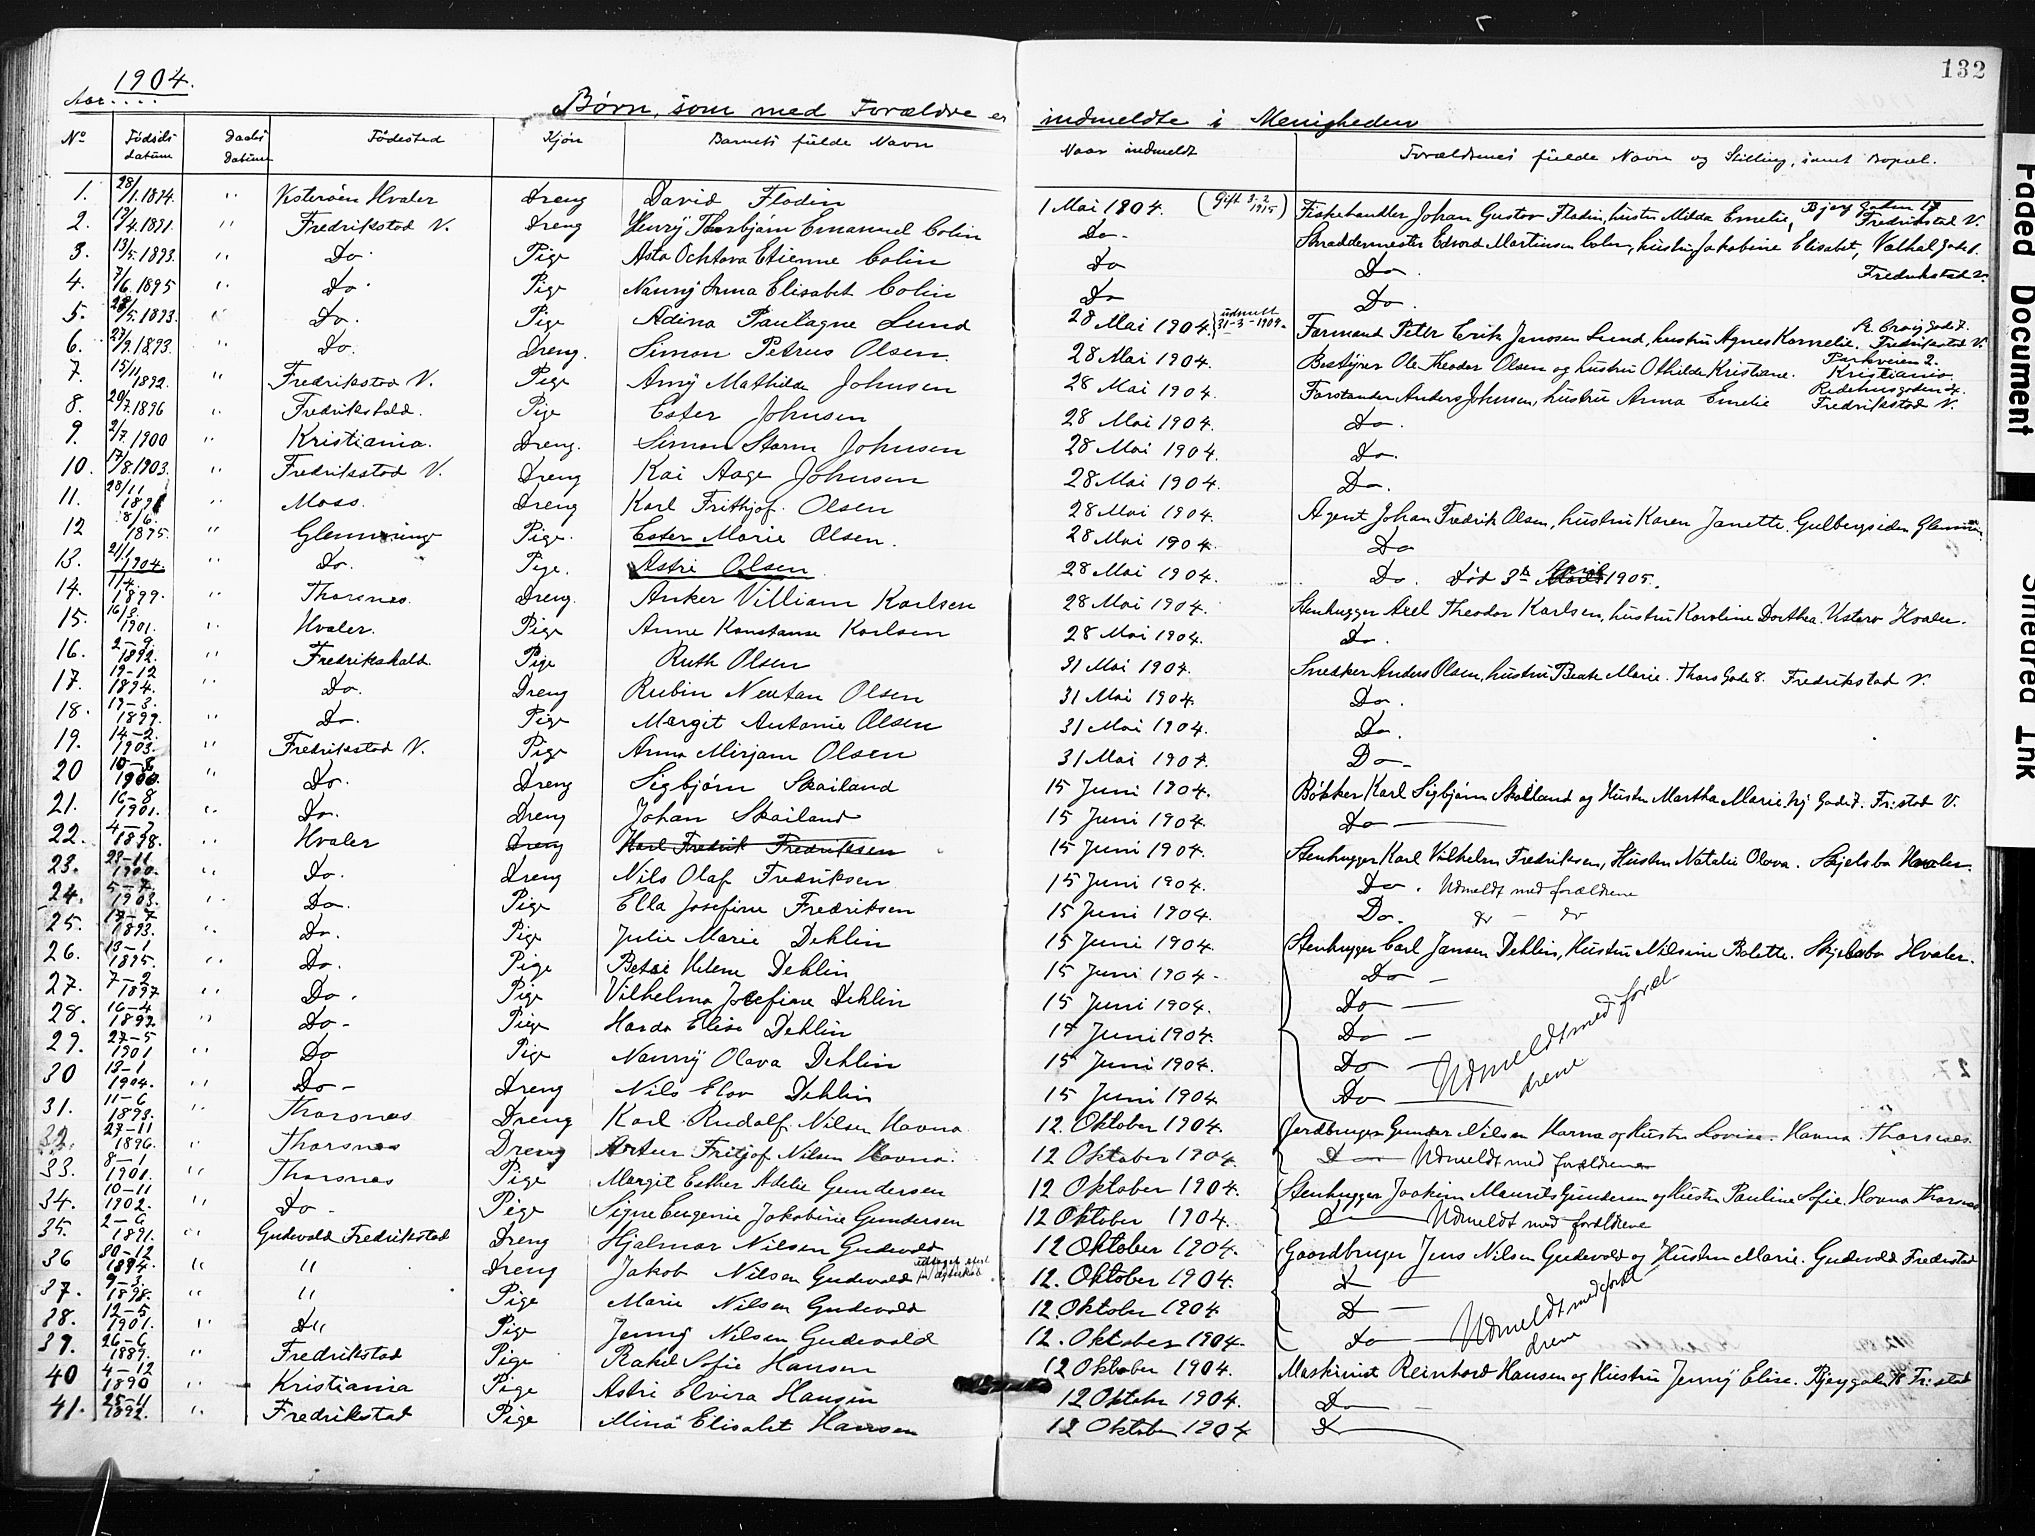 132
Aar.... 1904.
Børn, som med Forældre er indmeldte i Menigheden
No Fødsels datum Daabs datum Fødested Kjøn Barnets fulde Navn Naar indmeldt Forældrenes fulde Navn og Stilling, samt Bopæl.
1. 28/1.1894. " Vesterøen Hvaler Dreng David Flodin 1 Mai 1904. (Gift 3-2 1915) Fiskehandler Johan Gustav Flodin, hustru Milda Emelie, Bjerg Gaden 17 Fredrikstad V.
2. 17/4.1891. " Fredrikstad V. Dreng Henrÿ Thorbjørn Emanuel Colin Do- Skraddermester Edvard Martinsen Colin, hustru Jakobine Elisabet, Valhal gade 1. Fredrikstad V.
3. 13/5.1893. " Do. Pige Asta Ochtava Etienne Colin Do Do.
4. 7/6.1895 " Do. Pige Nannÿ Irma Elisabet Colin Do Do.
5. 28/5.1893. " Do. Pige Adina Paulagne Lund 28 Mai 1904. } udmeldt 31-3-1909. Formand Peter Erik Janosen Lund, hustru Agnes Kornelie. St. Croix gade 7. Fredrikstad V.
6. 27/9.1893. " Do. Dreng. Simon Petrus Olsen. 28 Mai 1904. Bestÿrer Ole Theodor Olsen og hustru Othilde Kristiane. Parkveien 2. Kristiania.
7. 15/11 1892. " Fredrikstad V. Pige Amÿ Mathilde Johnsen 28 Mai 1904. Forstander Anders Johnsen, hustru Anna Emelie Ridehusgaden 24. Fredrikstad V.
8. 20/7.1896 " Fredrikshald. Pige Ester Johnsen 28 Mai 1904. Do.
9. 2/7.1900 " Kristiania. Dreng. Simon Storm Johnsen 28 Mai 1904. Do.
10. 17/8.1903. " Fredrikstad V. Dreng Kai Aage Johnsen 28 Mai 1904. Do.
11. 28/11 1891 " Moss. Dreng Karl Frithjof Olsen 28 Mai 1904. Agent Johan Fredrik Olsen, hustru Karen Janette. Gulbergsiden Glemminge
12 8/6. 1895. " Glemminge Pige. Ester Marie Olsen. 28 Mai 1904. Do
13. 21/1 1904. " Do. Pige. Astri Olsen 28 Mai 1904. Do. Død 3de April 1905.
14. 1/4. 1899. " Thorsnes. Dreng. Anker Villiam Karlsen 28 Mai 1904. Stenhugger Axel Theodor Karlsen, hustru Karoline Dorthea. Vesterø Hvaler.
15. 16/3. 1901. " Hvaler. Pige Anne Konstanse Karlsen 28 Mai 1904. Do.
16. 2-9 1892. " Fredrikshald. Pige Ruth Olsen 31 Mai 1904. Snedker Anders Olsen, hustru Beate Marie. Thors Gade 8. Fredrikstad V.
17. 19-12 1894. " Do. Dreng Rubin Neutan Olsen 31 Mai 1904. Do.
18. 19-3. 1899. " Do. Pige Margit Antonie Olsen 31 Mai 1904. Do.
19. 14-2. 1903. " Fredrikstad V. Pige Anna Mirjam Olsen 31 Mai 1904. Do-
20 10-8 1900. " Do. Dreng Sigbjørn Skailand 15 Juni 1904. Bøkker Karl Sigbjørn Skailand og Hustru Martha Marie Nj Gade 7. Fr.stad V.
21. 16-8 1901. " Do. Dreng Johan Skailand 15 Juni 1904. Do
22. 4-7 1898. " Hvaler Dreng Karl Fredrik Fredriksen 15 Juni 1904. Stenhugger Karl Vilhelm Fredriksen, Hustru Natalie Olava. Skjelsbo Hvaler.
23. 23-11 1900. " Do. Dreng Nils Olaf Fredriksen 15 Juni 1904. Do. Udmeldt med forældrene
24. 5-7. 1903. " Do. Pige Ella Josefine Fredriksen 15 Juni 1904. Do. do - do
25. 17-7 1893. " Do. Pige Julie Marie Dehlin 15 Juni 1904. Stenhugger Carl Jansen Dehlin, Hustru Nilsine Bolette. Skjelsbo Hvaler.
26. 13-1 1895. " Do. Pige Betzi Helene Dehlin 15 Juni 1904- Do -
27. 7-2 1897 " Do. Pige Vilhelma Josefine Dehlin 15 Juni 1904. Do -
28. 16-4 1899. " Do- Pige Harda Elise Dehlin 15 Juni 1904. Do -
29. 27-5 1901 " Do Pige Nannÿ Olava Dehlin 15 Juni 1904. Do - Udmeldt med forældrene
30 13-1 1904. " Do- Dreng Nils Elov Dehlin 15 Juni 1904. Do
31. 11-6 1893. " Thorsnes Dreng Karl Rudolf Nilsen Havna 12. Oktober 1904. Jordbruger Gunder Nilsen Havna og Hustru Lovise. Havna. Thorsnes.
32. 27-11 1896. " Thorsnes Dreng Artur Fritjof Nilsen Havna. 12 Oktober 1904. Do Udmeldt med forældrene
33. 8-1 1901. " Thorsnes Pige Margit Esther Adelie Gundersen 12 Oktober 1904. Stenhugger Joakim Maurits Gundersen og Hustru Pauline Sofie. Havna Thorsnes
34. 10-11 1902. " Do- Pige Signe Eugenie Jakobine Gundersen 12 Oktober 1904. Do Udmeldt med forældrene
35. 2-6 1891. " Gudevold Fredrikstad Dreng Hjalmar Nilsen Gudevold 12 Oktober 1904. Gaardbruger Jens Nilsen Gudevold og Hustru Marie. Gudevold Fredrikstad
36 30-12 1894. " " Dreng Jakob Nilsen Gudevold 12. Oktober 1904. Do -
37. 9-3. 1898. " " Pige Marie Nilsen Gudevold 12 Oktober 1904. Do -
38. 12-5 1901. " Do Pige Jennÿ Nilsen Gudevold 12. Oktober 1904. Do - Udmeldt med forældrene
39. 26-6 1889. " Fredrikstad Pige Rakel Sofie Hansen 12 Oktober 1904. Maskinist Reinhard Hansen og Hustru Jennÿ Elise. Bjerggaden Fr.stad
40 4-12 1890 " Kristiania Pige Astri Elvira Hansen 12 Oktober 1904. Do -
41. 25-11 1892. " Fredrikstad Pige Mina Elisabet Hansen 12 Oktober 1904 Do
Faded Document
Smeared Ink